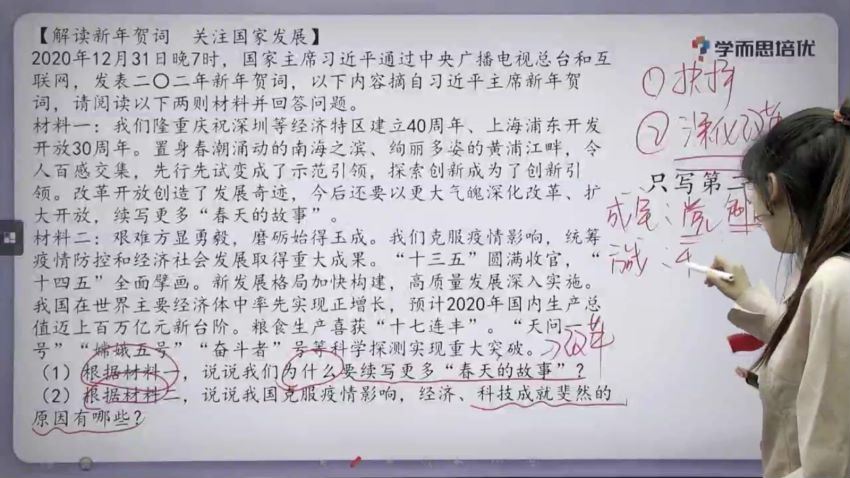 【解读新年贺词 关注国家发展】
学而思培优
2020年12月31日晚7时，国家主席习近平通过中央广播电视总台和互
联网，发表二〇二一年新年贺词，以下内容摘自习近平主席新年贺
词，请阅读以下两则材料并回答问题。
材料一：我们隆重庆祝深圳等经济特区建立40周年、上海浦东开发
开放30周年。置身春潮涌动的南海之滨、绚丽多姿的黄浦江畔，令
人百感交集，先行先试变成了示范引领，探索创新成为了创新引
领。改革开放创造了发展奇迹，今后还要以更大气魄深化改革、扩
大开放，续写更多“春天的故事”。
材料二：艰难方显勇毅，磨砺始得玉成。我们克服疫情影响，统筹
疫情防控和经济社会发展取得重大成果。“十三五”圆满收官，“
十四五”全面擘画。新发展格局加快构建，高质量发展深入实施。
我国在世界主要经济体中率先实现正增长，预计2020年国内生产总
值迈上百万亿元新台阶。粮食生产喜获“十七连丰”。“天问一
号”“嫦娥五号”“奋斗者”号等科学探测实现重大突破。
（1）根据材料一，说说我们为什么要续写更多“春天的故事”？
（2）根据材料二，说说我国克服疫情影响，经济、科技成就斐然的
原因有哪些？
① 抉择
② 深化改革
只写第二
成就：党 制